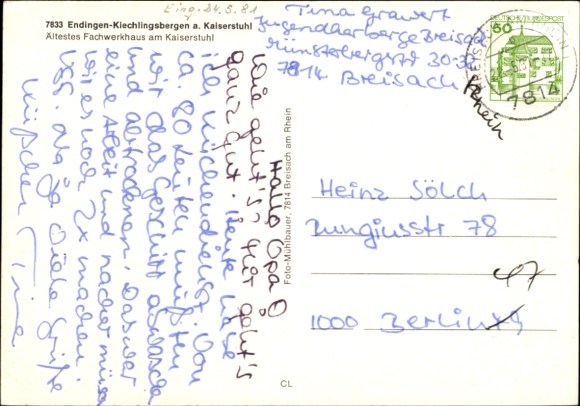 Eing. 24.5.81
7833 Endingen-Kiechlingsbergen a. Kaiserstuhl
Ältestes Fachwerkhaus am Kaiserstuhl
Tina Grawert
Jugendherberge Breisach
Münsterbergstr 30-32
7814 Breisach
Rhein
DEUTSCHE BUNDESPOST
50
7814
Hallo Opa
Wie geht's? Mir geht's
ganz gut. Heute habe
ich Küchendienst. Von
ca. 80 Leuten mußten
wir das Geschirr abwaschen
und abtrocknen. Das war
eine Arbeit und nachher müssen
wir es noch 2x machen.
Also Viele Grüße
Küßchen Tina
Foto-Mühlbauer, 7814 Breisach am Rhein
CL
Heinz Sölch
Jungiusstr 78
47
1000 Berlin